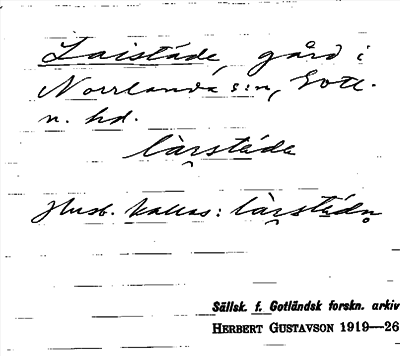 Laistäde, gård i
Norrlanda s:n, Gotl.
n. hd.
làrstäde
Husb. kallas: làrstädn̥
Sällsk. f. Gotländsk forskn. arkiv
HERBERT GUSTAVSON 1919—26